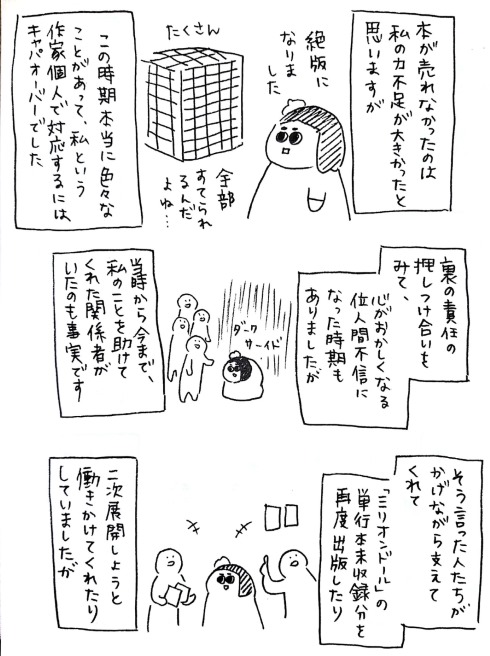 本が売れなかったのは
私の力不足が大きかったと
思いますが
絶版に
なりま
した
たくさん
全部
すてられ
るんだ
よね…
この時期本当に色々な
ことがあって、私という
作家個人で対応するには、
キャパオーバーでした
裏の責任の
押しつけ合いを
みて、
心がおかしくなる
位人間不信に
なった時期も
ありましたが
ダーク
サイド
当時から今まで、
私のことを助けて
くれた関係者が
いたのも事実です
そう言った人たちが
かげながら支えて
くれて
「ミリオンドール」の
単行本未収録分を
再度出版したり
二次展開しようと
働きかけてくれたり
していましたが